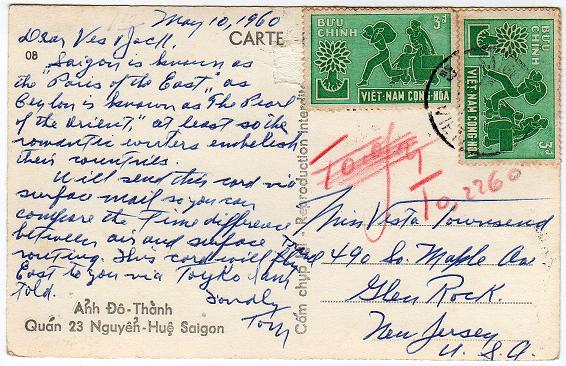 May 10, 1960
CARTE
08
Dear Ves & Jack.
Saigon is known as
the "Paris of the East," as
Ceylon is known as "The Pearl
of the Orient," at least so the
romantic writers embelesh
their countries.
Will send this card via
surface mail so you can
compare the time difference
between air and surface
routing. This card will fly
East to you via Toyko I am
told.
Fondly
Tom
Ảnh Đô-Thành
Quán 23 Nguyễn-Huệ Saigon
Cấm chụp lại - Reproduction interdite
BƯU CHÍNH 3đ
VIỆT-NAM CỘNG-HÒA
BƯU CHÍNH 3đ
VIỆT-NAM CỘNG-HÒA
To, 2260
Miss Vesta Townsend
490 So. Maple Ave
Glen Rock.
New Jersey
U. S. A.